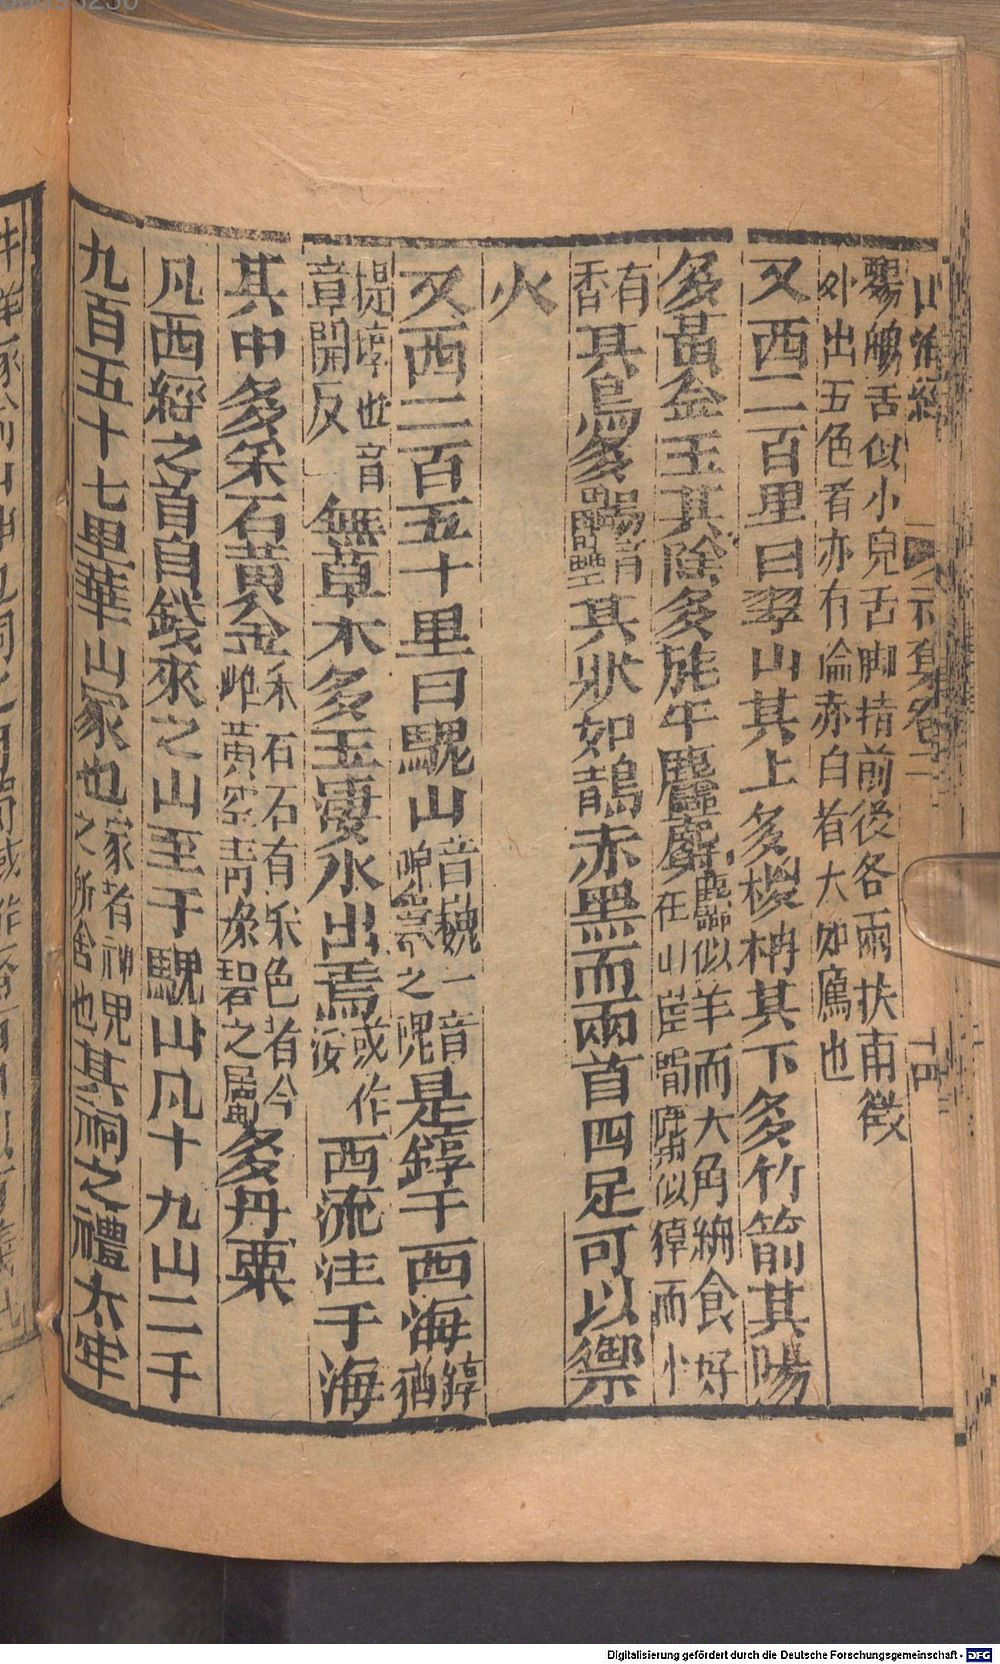 山海經
元集卷二
鸚䳇舌似小兒舌脚指前後各兩扶南徼
外出五色者亦有倫赤白者大如鴈也
又西二百里曰翠山其上多椶枏其下多竹箭其陽
多黃金玉其陰多旄牛麢麝
麢似羊而大角細食好
在山崖間麝似獐而小
有
香
其鳥多鸓
音
壘
其狀如鵲赤黑而兩首四足可以禦
火
又西二百五十里曰騩山
音巍一音
之隗
是錞于西海
錞
猶
提埻也音
章閏反
無草木多玉淒水出焉
或作
西流注于海
其中多采石黃金
采石石有采色者今
雌黃空靑綠碧之屬
多丹粟
凡西經之首自錢來之山至于騩山凡十九山二千
九百五十七里華山冢也
冢者神鬼
之所舍也
其祠之禮太牢
Digitalisierung gefördert durch die Deutsche Forschungsgemeinschaft - DFG